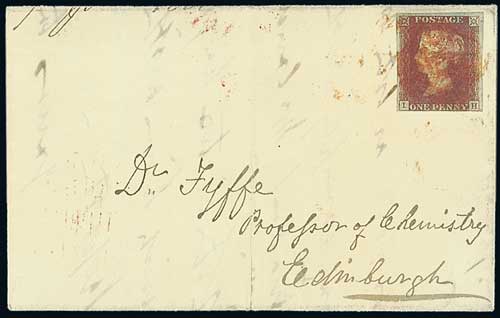 POSTAGE
I H
ONE PENNY
Dr. Fyffe
Professor of Chemistry
Edinburgh